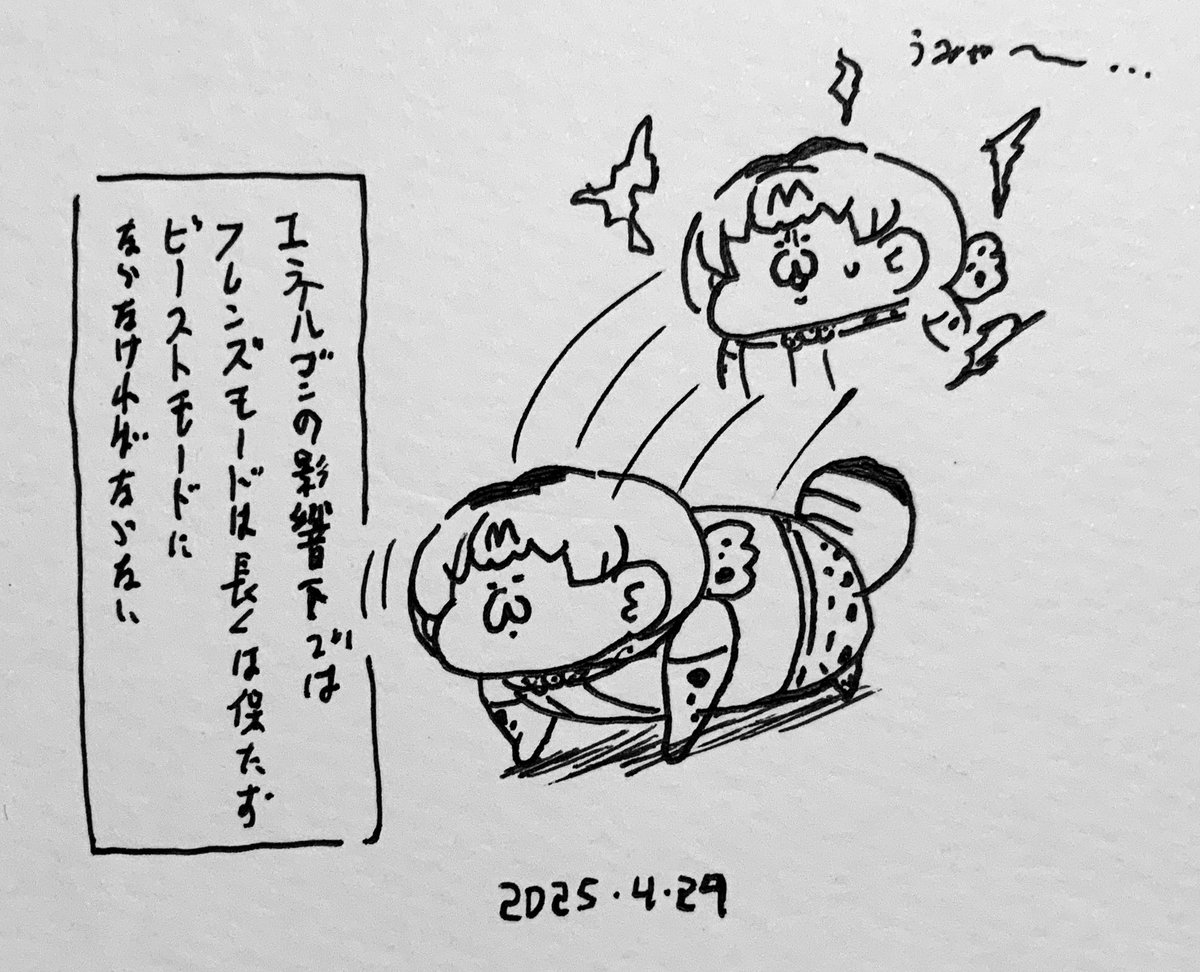 うみゃ〜…
エネルゴンの影響下では
フレンズモードは長くは保たず
ビーストモードに
ならなければならない
2025.4.29